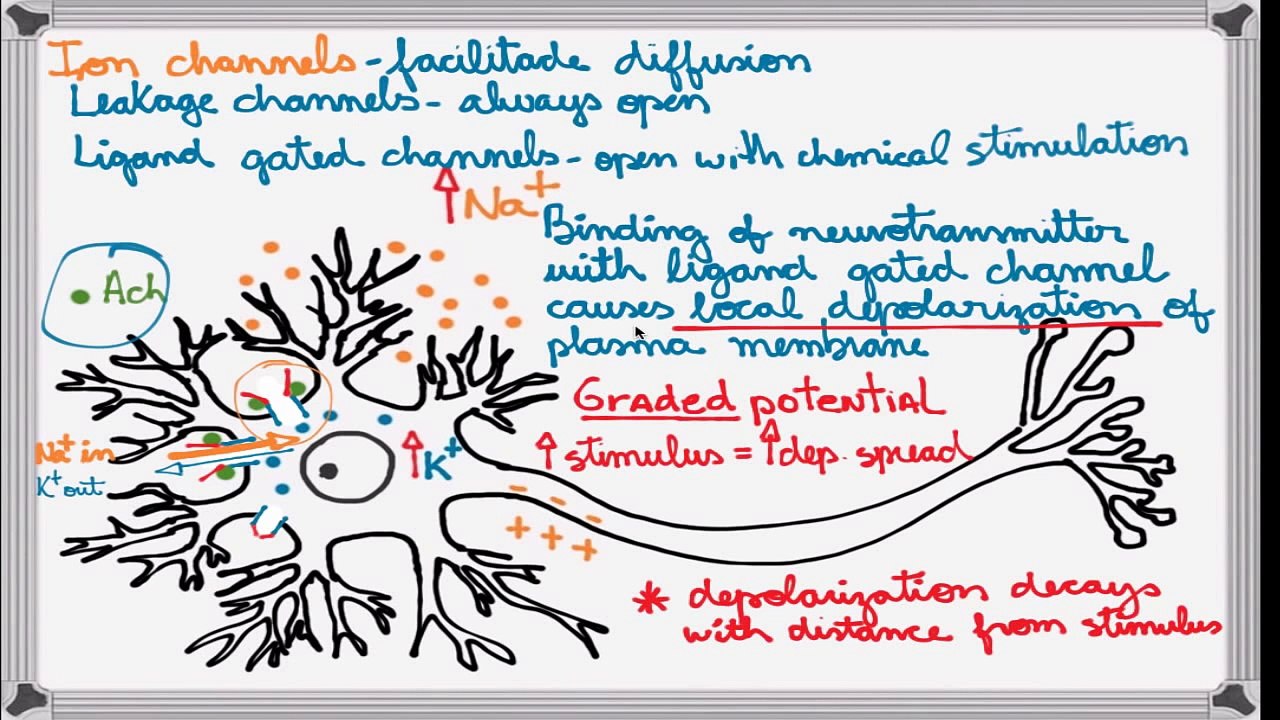 Ion channels - facilitade diffusion
Leakage channels - always open
Ligand gated channels - open with chemical stimulation
↑ Na+
Binding of neurotransmitter
with ligand gated channel
causes local depolarization of
plasma membrane
Ach
Graded potential
↑ stimulus = ↑ dep. spread
Na+ in
K+ out
↑ K+
- - -
+ + +
* depolarization decays
with distance from stimulus